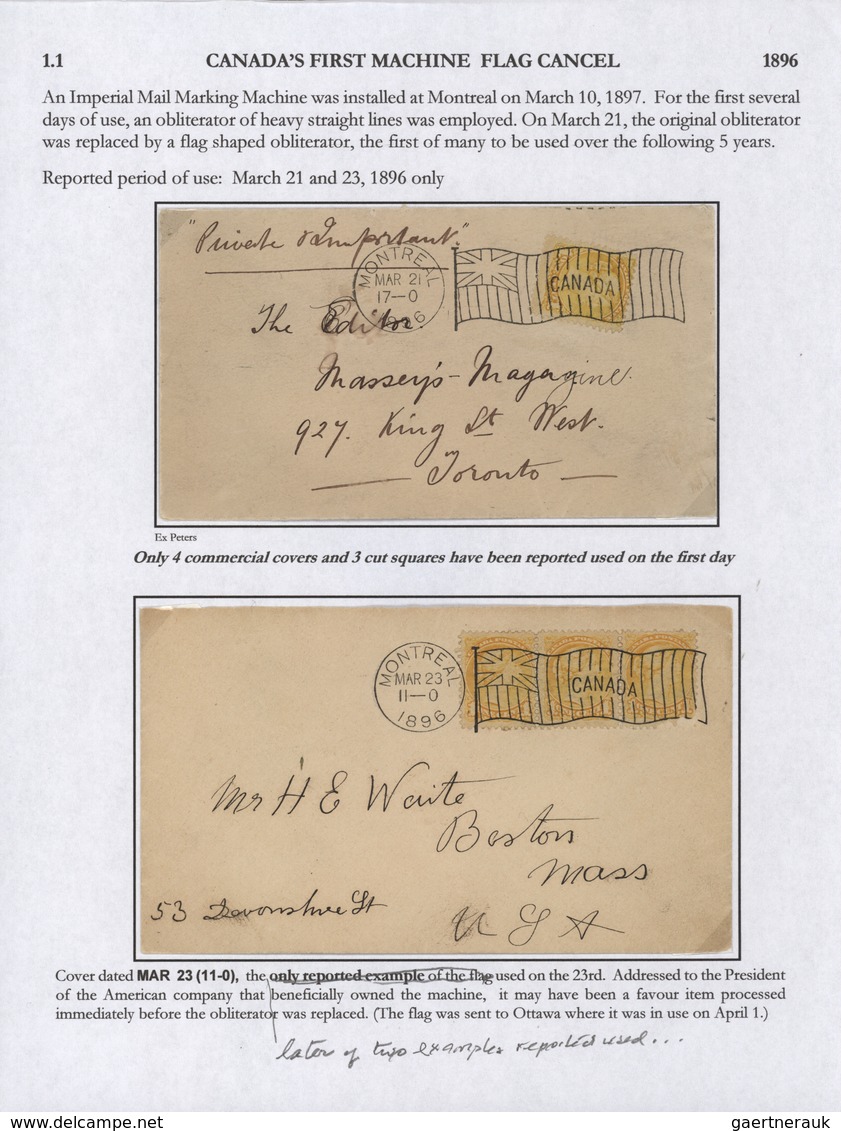 1.1 CANADA'S FIRST MACHINE FLAG CANCEL 1896
An Imperial Mail Marking Machine was installed at Montreal on March 10, 1897. For the first several
days of use, an obliterator of heavy straight lines was employed. On March 21, the original obliterator
was replaced by a flag shaped obliterator, the first of many to be used over the following 5 years.
Reported period of use: March 21 and 23, 1896 only
"Private & Important."
MONTREAL
MAR 21
17-0
1896
CANADA
The Editor
Massey's - Magazine.
927. King St West.
Toronto
Ex Peters
Only 4 commercial covers and 3 cut squares have been reported used on the first day
MONTREAL
MAR 23
11-0
1896
CANADA
Mr H E Waite
Boston
Mass
53 Devonshire St
U S A
Cover dated MAR 23 (11-0), the only reported example of the flag used on the 23rd. Addressed to the President
of the American company that beneficially owned the machine, it may have been a favour item processed
immediately before the obliterator was replaced. (The flag was sent to Ottawa where it was in use on April 1.)
later of two examples reported used...
www.delcampe.net
gaertnerauk